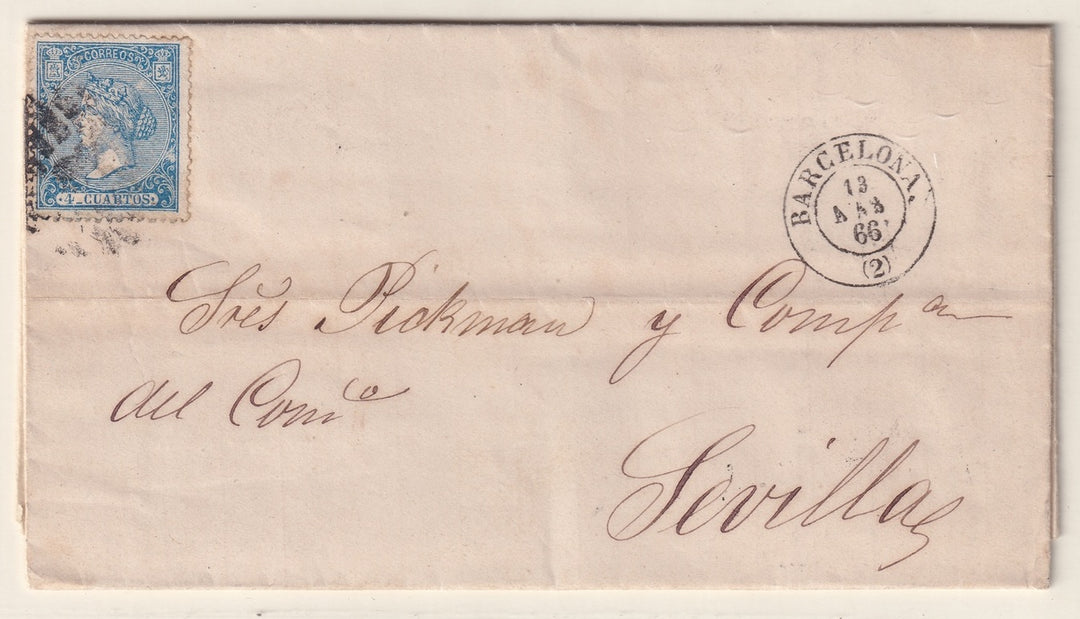 CORREOS
4 CUARTOS
BARCELONA
13
ABR
66
(2)
Sres Pickman y Compª
del Comº
Sevilla